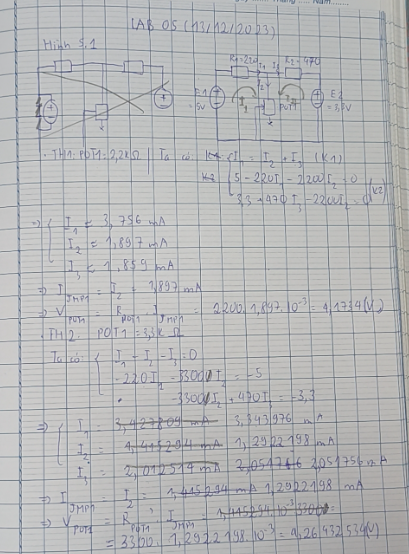 LAB 05 (13/12/2023)
Hình 5.1
R1=220 I1 I3 R2=470
I2
E1 = 5V
POT1
E2 = 3,3V
TH1: POT1=2,2kΩ | Ta có: I1 = I2 + I3 (K1)
5 - 220I1 - 2200I2 = 0 (K2)
3,3 + 470I3 - 2200I2 = 0
=> I1 = 3,756 mA
I2 = 1,897 mA
I3 = 1,859 mA
=> IJMP1 = I2 = 1,897 mA
=> VPOT1 = RPOT1 . IJMP1 = 2200.1,897.10^-3 = 4,1734(V)
TH2: POT1 = 3,3k Ω
Ta có: I1 - I2 - I3 = 0
-220I1 - 3300I2 = -5
-3300I2 + 470I3 = -3,3
=> I1 = 3,427809 mA 3,343976 mA
I2 = 1,415294 mA 1,2922198 mA
I3 = 2,012514 mA 2,051756 mA
=> IJMP1 = I2 = 1,415294 mA 1,2922198 mA
=> VPOT1 = RPOT1 . IJMP1 = 1,415294.10^-3.3300 =
= 3300.1,2922198.10^-3 = 4,26432534(V)